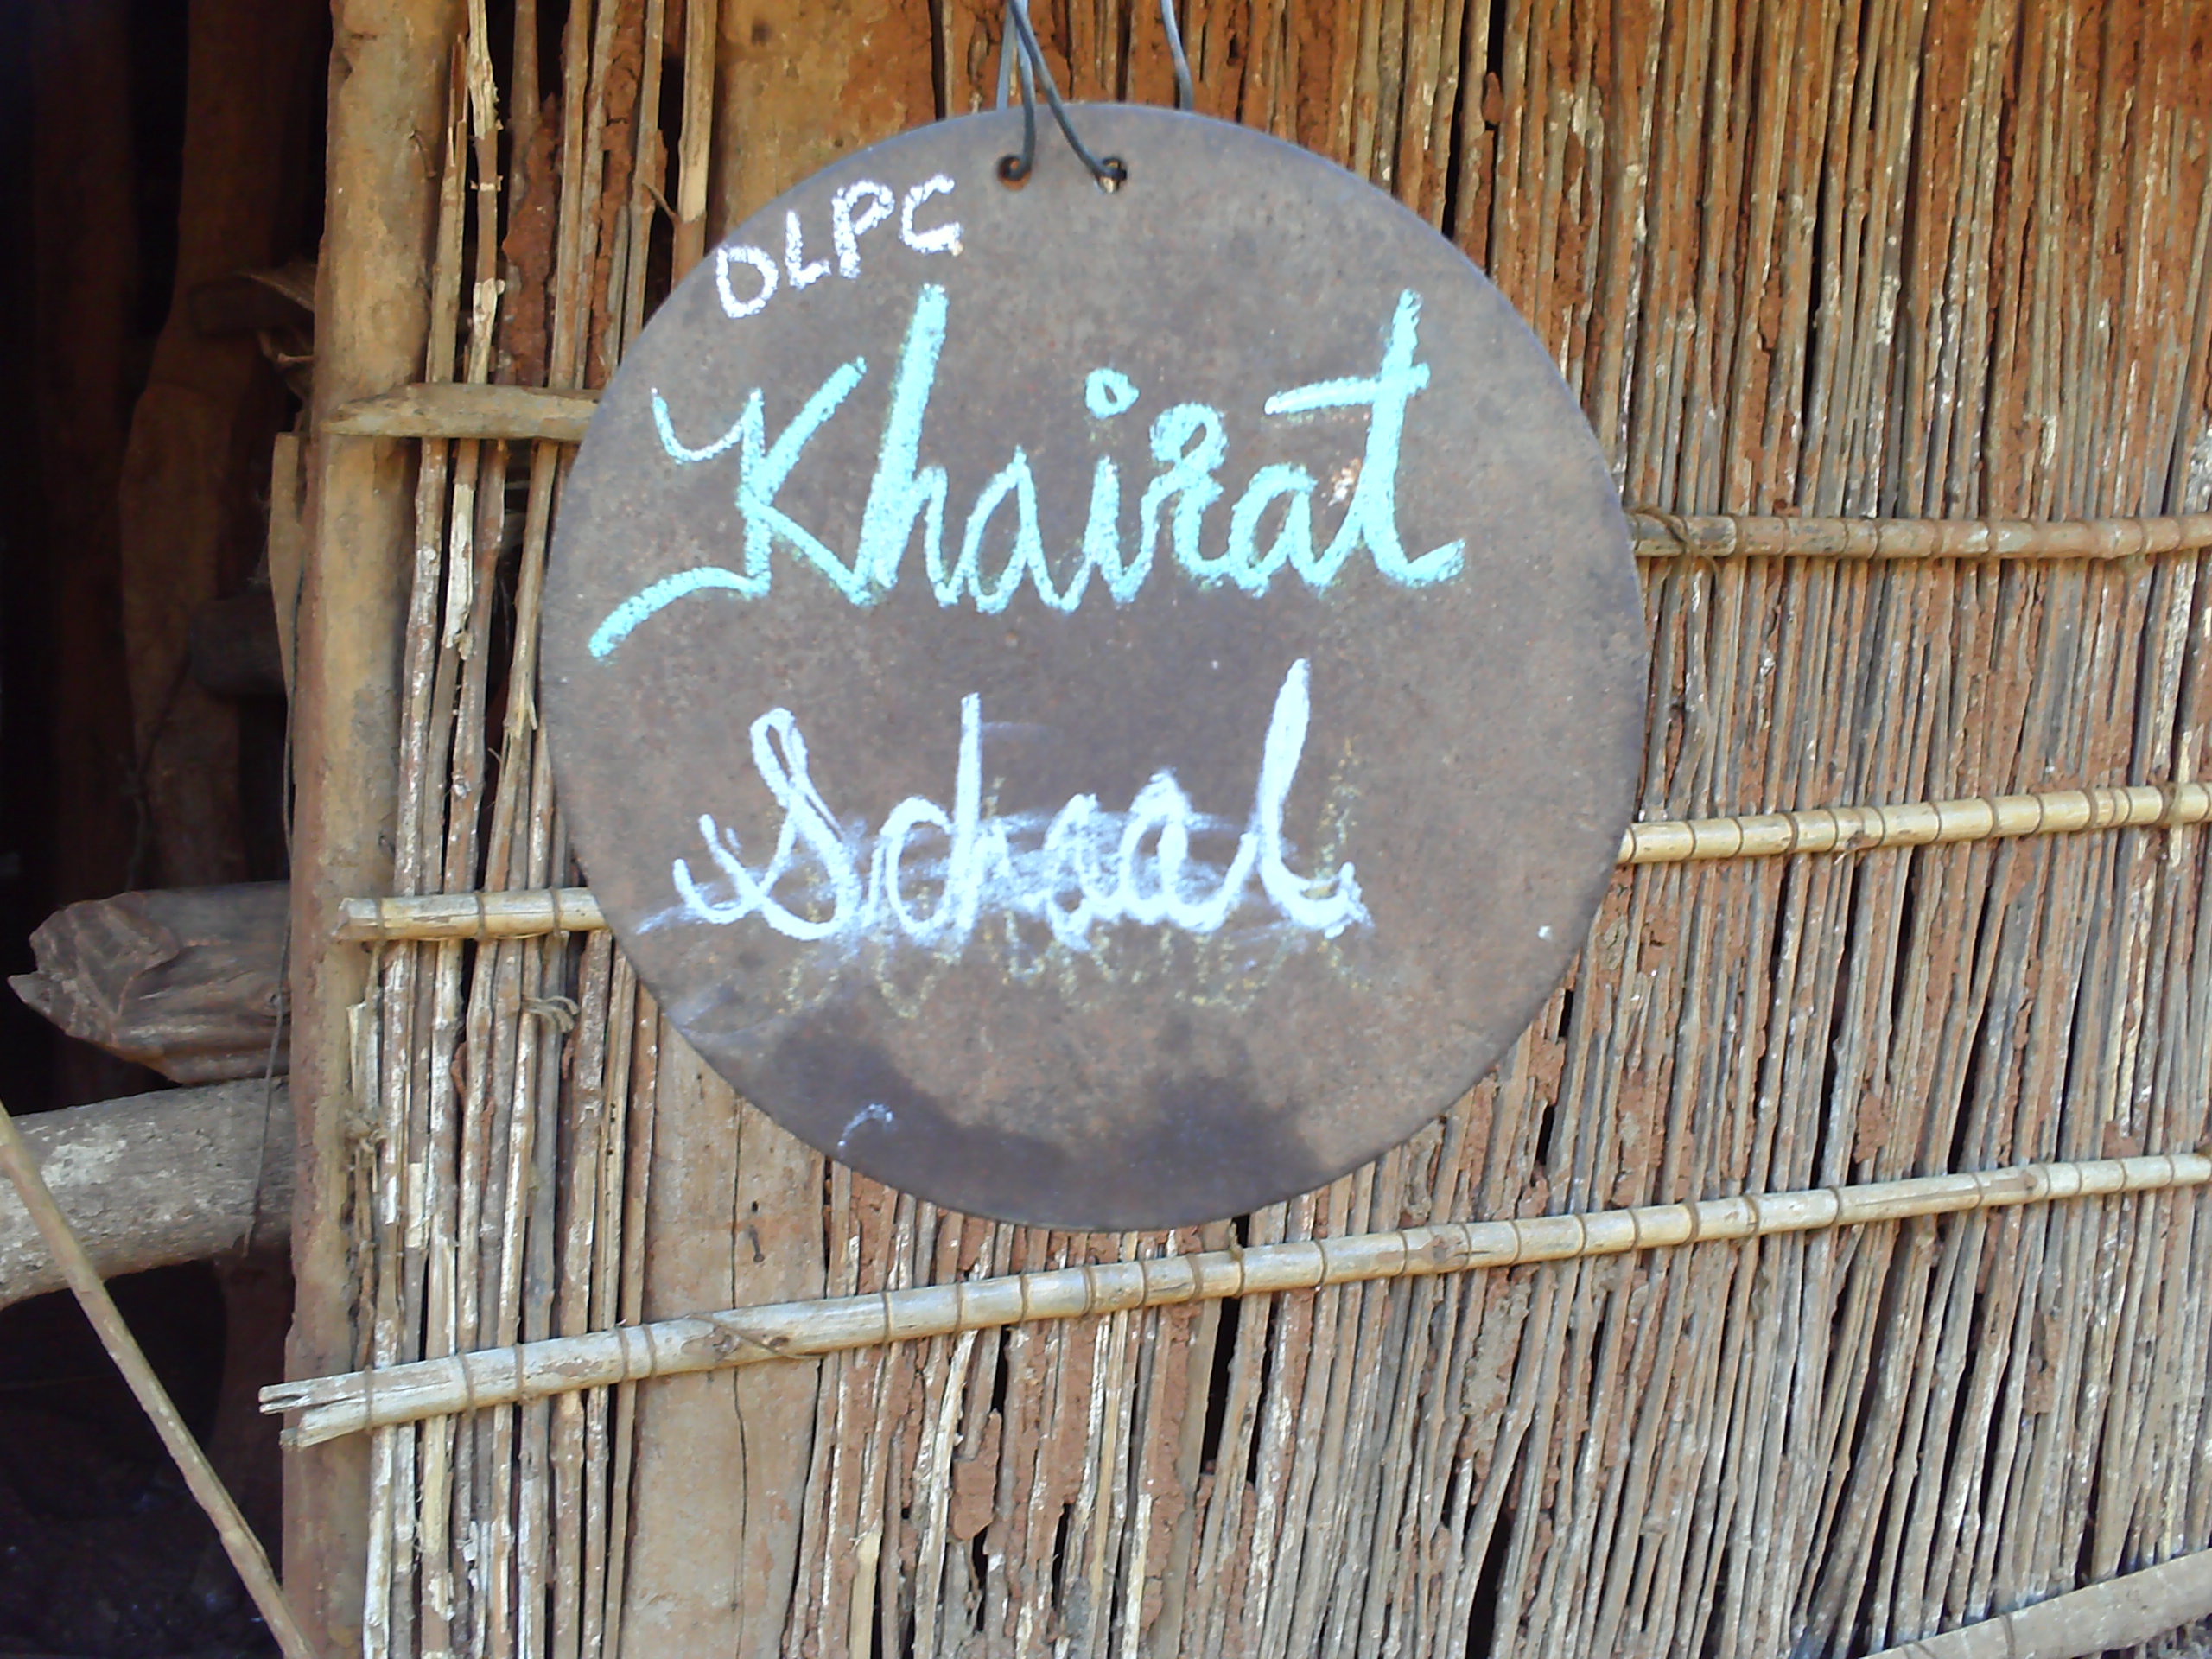 OLPC
Khairat
School